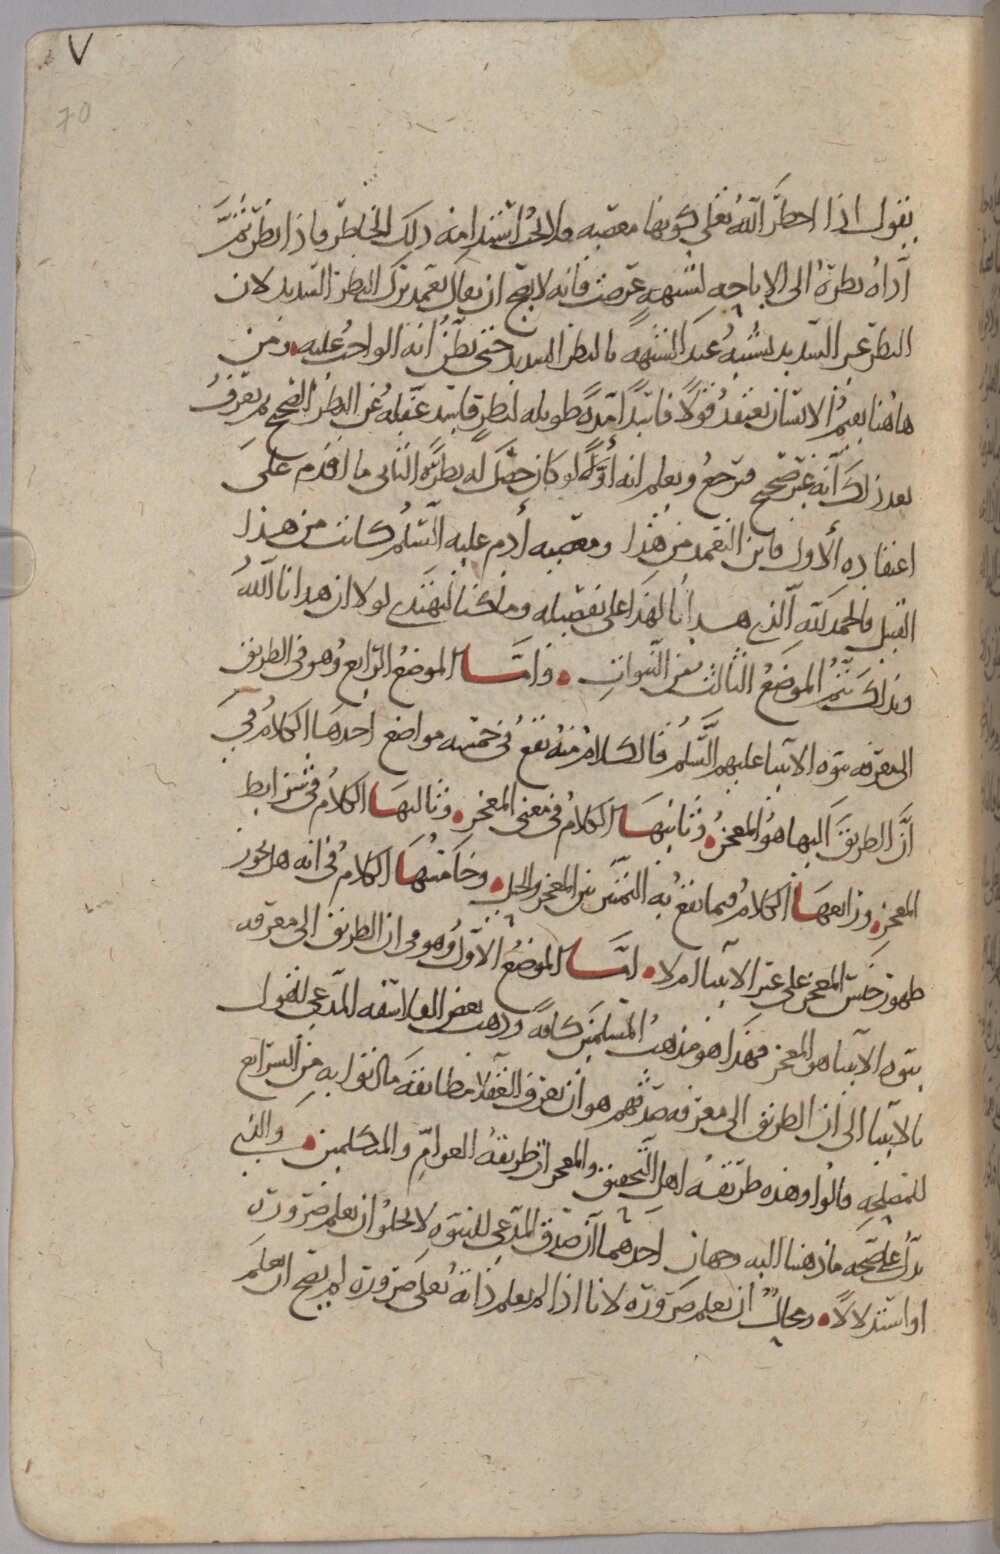 ٧
70
نقول اذا اخطر الله تعلى كونها معصيه فلا بحث اشد امنه ذلك الخاطر فاذا نظر ثمّ
أدّاهُ نظرهُ الى الإباحه لشبهةٍ عرضت فانه لا يصح ان يقال تعمد ترك النظر السديد لان
النظر غير السديد يشبهُ عند الشبهه بالنظر السديد حتى يظنّ انه الواجب عليه ومن
هاهنا يقيمُ الانسان يعتقد قولًا فاسدًا مدةً طويله لنظرٍ فاسد عقله عن النظر الصحيح ثم يعرفُ
بعد ذلك أنه غير صحيح فيرجعُ ويعلم انه لو كان حصل له نظره الثانى ما اقدم على
اعتقاده الأول فاين التعمد من هذا ومعصيه أدم عليه السلم كانت من هذا
القبيل فالحمد لله الذي هدانا لهذا على تفصيله وما كنا لنهتدي لولا ان هدانا الله
وبذلك يتمُّ الموضعُ الثالث من النبوات وأمّا الموضعُ الرابع وهو فى الطريق
الى معرفه نبوه الانبيا عليهم السَّلم فالكلام منه يقع فى خمسه مواضع احدها الكلامُ في
انّ الطريقَ اليها هو المعجزُ وثانيها الكلامُ فى معنى المعجز وثالثها الكلامُ فى شرايط
المعجز ورابعها الكلامُ فيما يقعُ به التمييز بين المعجز والحيل وخامسُها الكلامُ فى انه هل يجوز
ظهور جنس المعجز على غير الانبيا ام لا امّا الموضعُ الأولُ وهو فى ان الطريق الى معرفه
نبوه الانبيا هو المعجز فهذا هو مذهبُ المسلمين كافةً وذهب بعض الفلاسفه المدّعي للقول
بالانبيا الى ان الطريق الى معرفه صدقهم هو أن يعرف العقلا مطابقه ما اتوا به من الشرايع
للمصلحه قالوا وهذه طريقهُ اهل التحقيق والمعجز انه طريقهُ العوامّ والمتكلمين والذي
يدلّ على صحه ما ذهبنا اليه وجهان احدهما أن صدق المدّعى للنبوه لا يخلوا ان يعلم ضروره
او استدلالًا ومحالٌ ان يعلم ضروره لانا اذا لم يعلم ذاته تعلى ضروره لم يصح ان يعلم